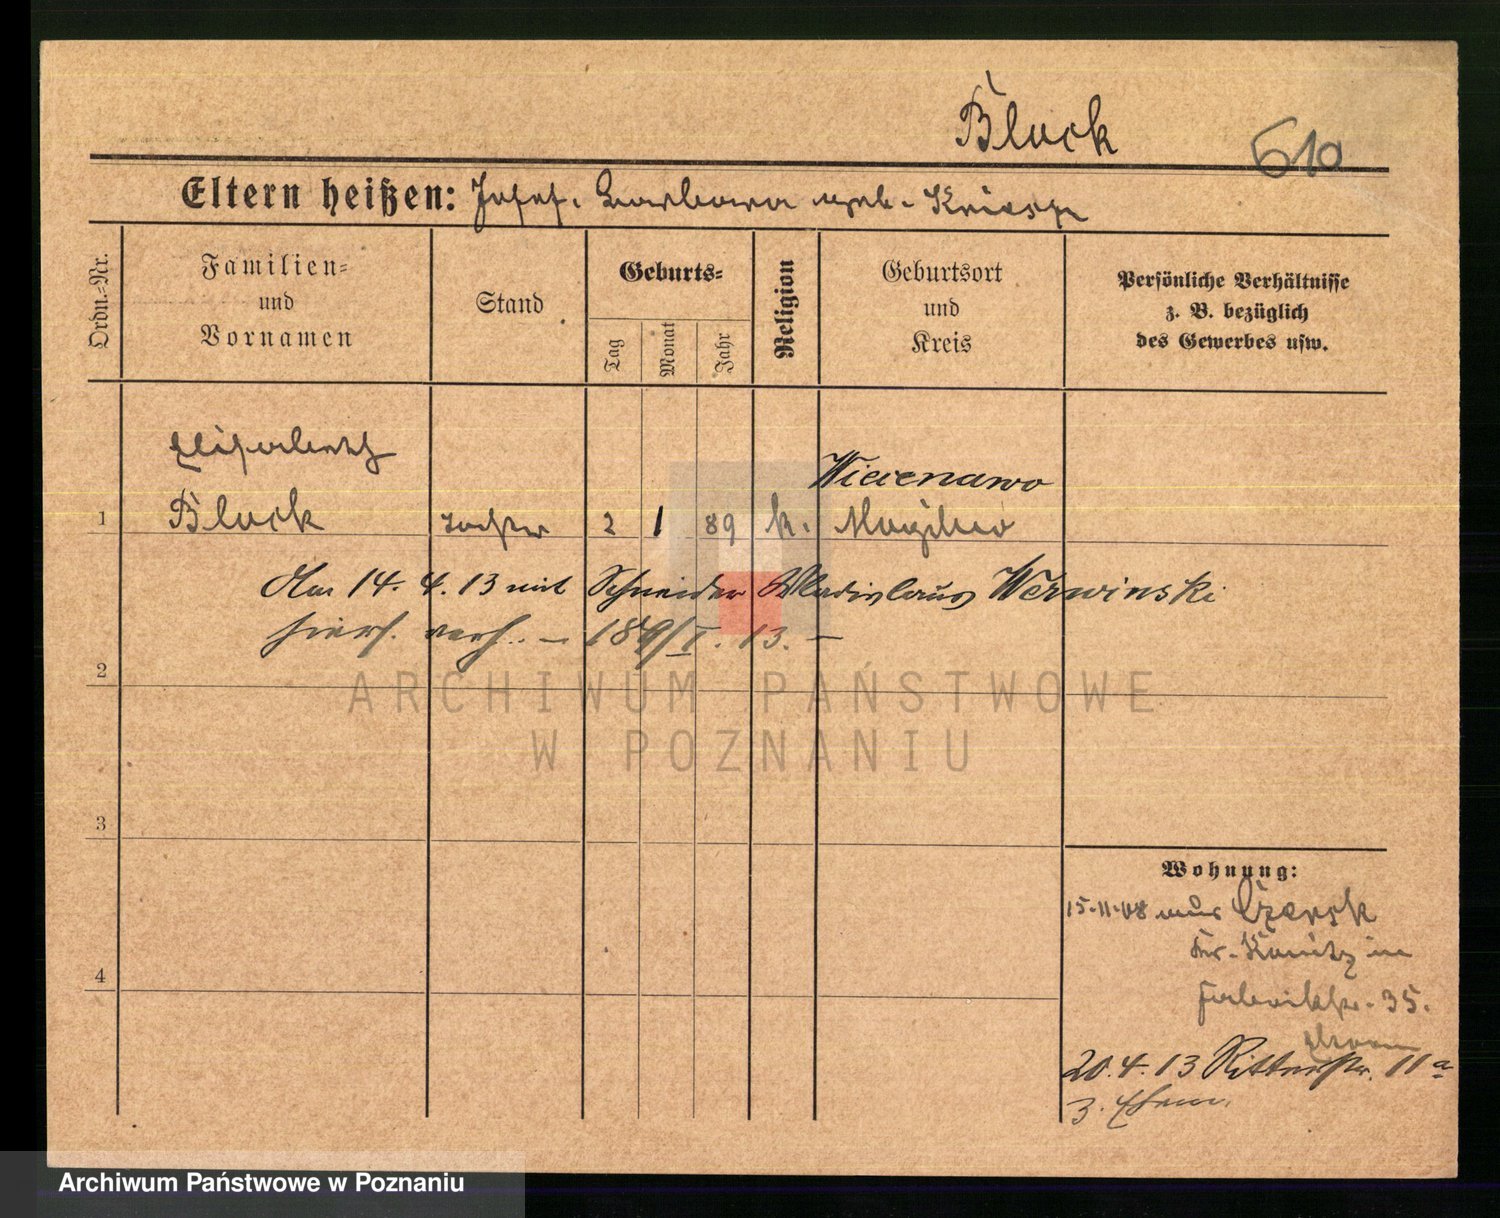 Bluck
510
Eltern heißen: Josef. Barbara geb. Kriesge
Ordn.-Nr.
Familien-
und
Vornamen
Stand
Geburts-
Tag
Monat
Jahr
Religion
Geburtsort
und
Kreis
Persönliche Verhältnisse
z. B. bezüglich
des Gewerbes usw.
Elisabeth
Wiecenawo
1 Bluck Tochter 2 1 89 k. Mogilno
Am 14. 4. 13 mit Schneider Wladislaus Werwinski
hiers. verh. – 189/I. 13. –
2
ARCHIWUM PAŃSTWOWE
W POZNANIU
3
Wohnung:
15.11.08 aus Czersk
Kr. Konitz in
Fabrikstr. 35.
4
Eltern
20. 4. 13 Ritterstr. 11a
z. Ehem.
Archiwum Państwowe w Poznaniu